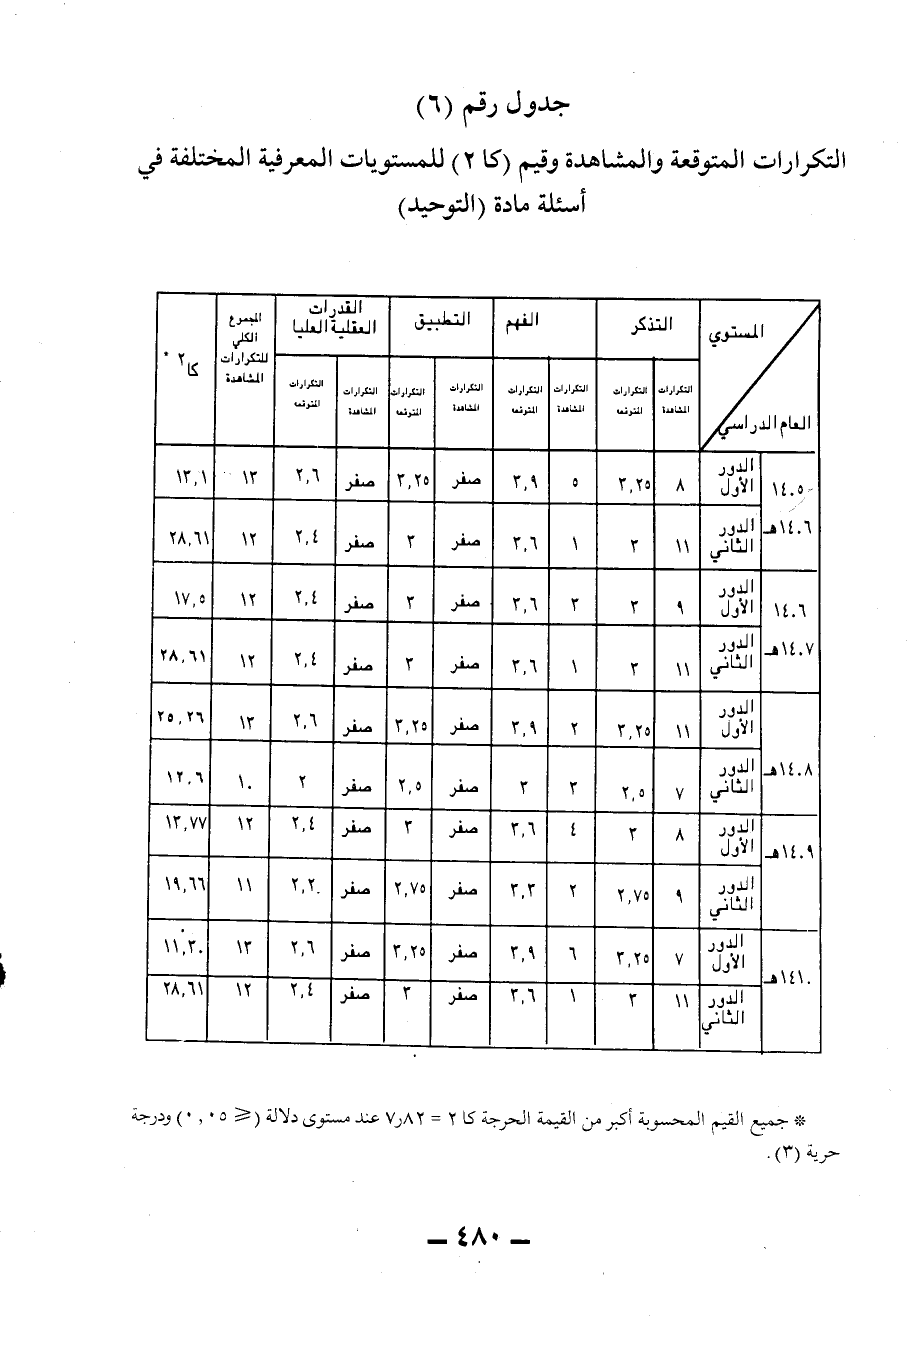 جدول رقم (٦)
التكرارات المتوقعة والمشاهدة وقيم (كا ٢) للمستويات المعرفية المختلفة في
أسئلة مادة (التوحيد)
المستوي
العام الدراسي
التذكر
الفهم
التطبيق
القدرات العقلية العليا
المجموع الكلي للتكرارات المشاهدة
كا٢ *
التكرارات المشاهدة
التكرارات المتوقعه
التكرارات المشاهدة
التكرارات المتوقعه
التكرارات المشاهدة
التكرارات المتوقعه
التكرارات المشاهدة
التكرارات المتوقعه
١٤٠٥
الدور الأول ٨ ٣,٢٥ ٥ ٣,٩ صفر ٣,٢٥ صفر ٢,٦ ١٣ ١٣,١
١٤٠٦هـ
الدور الثاني ١١ ٣ ١ ٣,٦ صفر ٣ صفر ٢,٤ ١٢ ٢٨,٦١
١٤٠٦
الدور الأول ٩ ٣ ٣ ٣,٦ صفر ٣ صفر ٢,٤ ١٢ ١٧,٥
١٤٠٧هـ
الدور الثاني ١١ ٣ ١ ٣,٦ صفر ٣ صفر ٢,٤ ١٢ ٢٨,٦١
١٤٠٨هـ
الدور الأول ١١ ٣,٢٥ ٢ ٣,٩ صفر ٣,٢٥ صفر ٢,٦ ١٣ ٢٥,٢٦
الدور الثاني ٧ ٢,٥ ٣ ٣ صفر ٢,٥ صفر ٢ ١٠ ١٢,٦
١٤٠٩هـ
الدور الأول ٨ ٣ ٤ ٣,٦ صفر ٣ صفر ٢,٤ ١٢ ١٣,٧٧
الدور الثاني ٩ ٢,٧٥ ٢ ٣,٣ صفر ٢,٧٥ صفر ٢,٢٠ ١١ ١٩,٦٦
١٤١٠هـ
الدور الأول ٧ ٣,٢٥ ٦ ٣,٩ صفر ٣,٢٥ صفر ٢,٦ ١٣ ١١,٣٠
الدور الثاني ١١ ٣ ١ ٣,٦ صفر ٣ صفر ٢,٤ ١٢ ٢٨,٦١
* جميع القيم المحسوبة أكبر من القيمة الحرجة كا ٢ = ٧٫٨٢ عند مستوى دلالة (≤ ٠,٠٥) ودرجة
حرية (٣).
– ٤٨٠ –